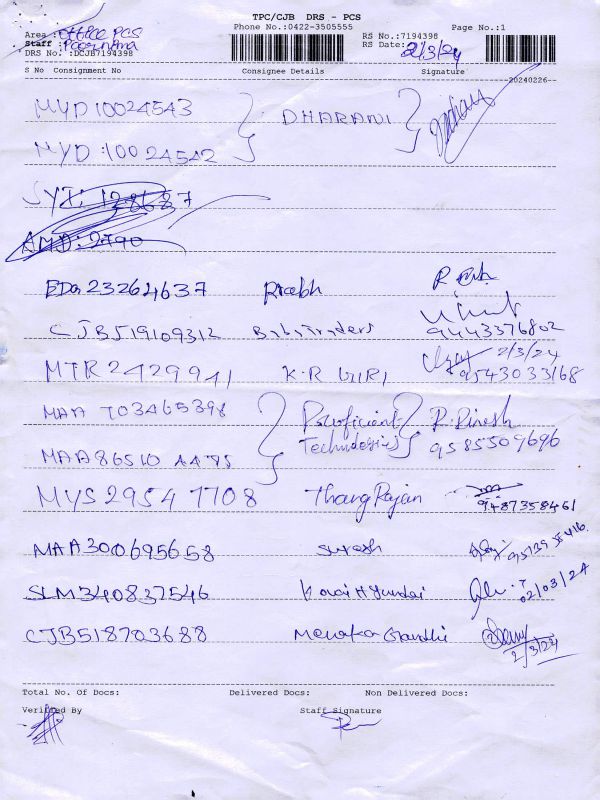 TPC/CJB DRS - PCS
Phone No.:0422-3505555 Page No.:1
Area : Office PCS RS No.:7194398
Staff : Poornima RS Date: 2/3/24
DRS No. :DCJB7194398
S No Consignment No Consignee Details Signature
20240226
MYD 10024543 DHARANI
MYD :10024542
AMD: 2790
EDG 23264637 Prabh
CJB519109312 Baby Traders 9443376802
MTR 2429941 K.R GIRI 2/3/24 9543033168
MAA 703465398 Proficient R. Dinesh
MAA 86510 4495 Technologies 9585509696
MYS 2954 7708 Thang Rajan 9487358461
MAA300695658 Suresh
SLM340837546 Kovai Hyundai 02/03/24
CJB518703688 Menaka Gandhi 2/3/24
Total No. Of Docs: Delivered Docs: Non Delivered Docs:
Verified By Staff Signature